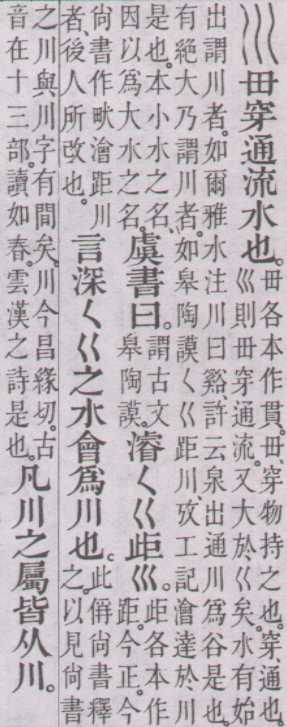 巛毌穿通流水也。毌各本作貫。毌、穿物持之也。穿、通也。巜則毌穿通流。又大於巜矣。水有始
出謂川者。如爾雅水注川曰谿、許云泉出通川爲谷是也。有絕大乃謂川者。如皋陶謨𡿨巜距川、攷工記澮達於川
是也。本小水之名、因以爲大水之名。虞書曰。謂古文皋陶謨。濬𡿨巜歫巛。歫各本作距。今正。今
尚書作畎澮距川者、後人所改也。言深𡿨巜之水會爲川也。此偁尚書釋之。以見尚書
之川與川字有間矣。川今昌緣切。古音在十三部。讀如春。雲漢之詩是也。凡川之屬皆从川。